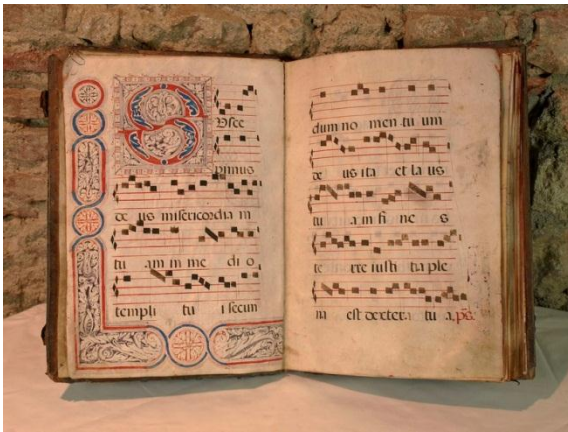 S
usce
pimus
de us misericordia m
tu am in me di o
templi tu i secun
dum no men tu um
de us ita et la us
tu a in fi ne s
te rre iusti tia ple
na est dextera tu a. ps.